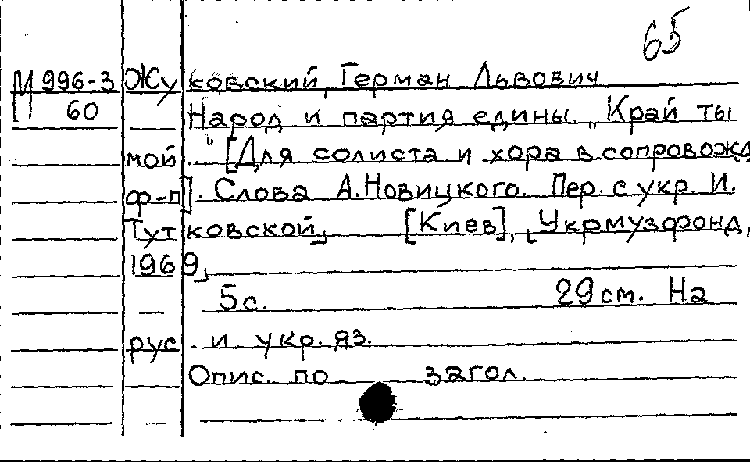 65
М 996-3 Жуковский, Герман Львович
60 Народ и партия едины. "Край ты
мой..." [Для солиста и хора в сопровожд.
ф-п]. Слова А.Новицкого. Пер. с укр. И.
Тутковской. [Киев], [Укрмузфонд,
1969]
5с. 29см. На
рус. и укр. яз.
Опис. по загол.